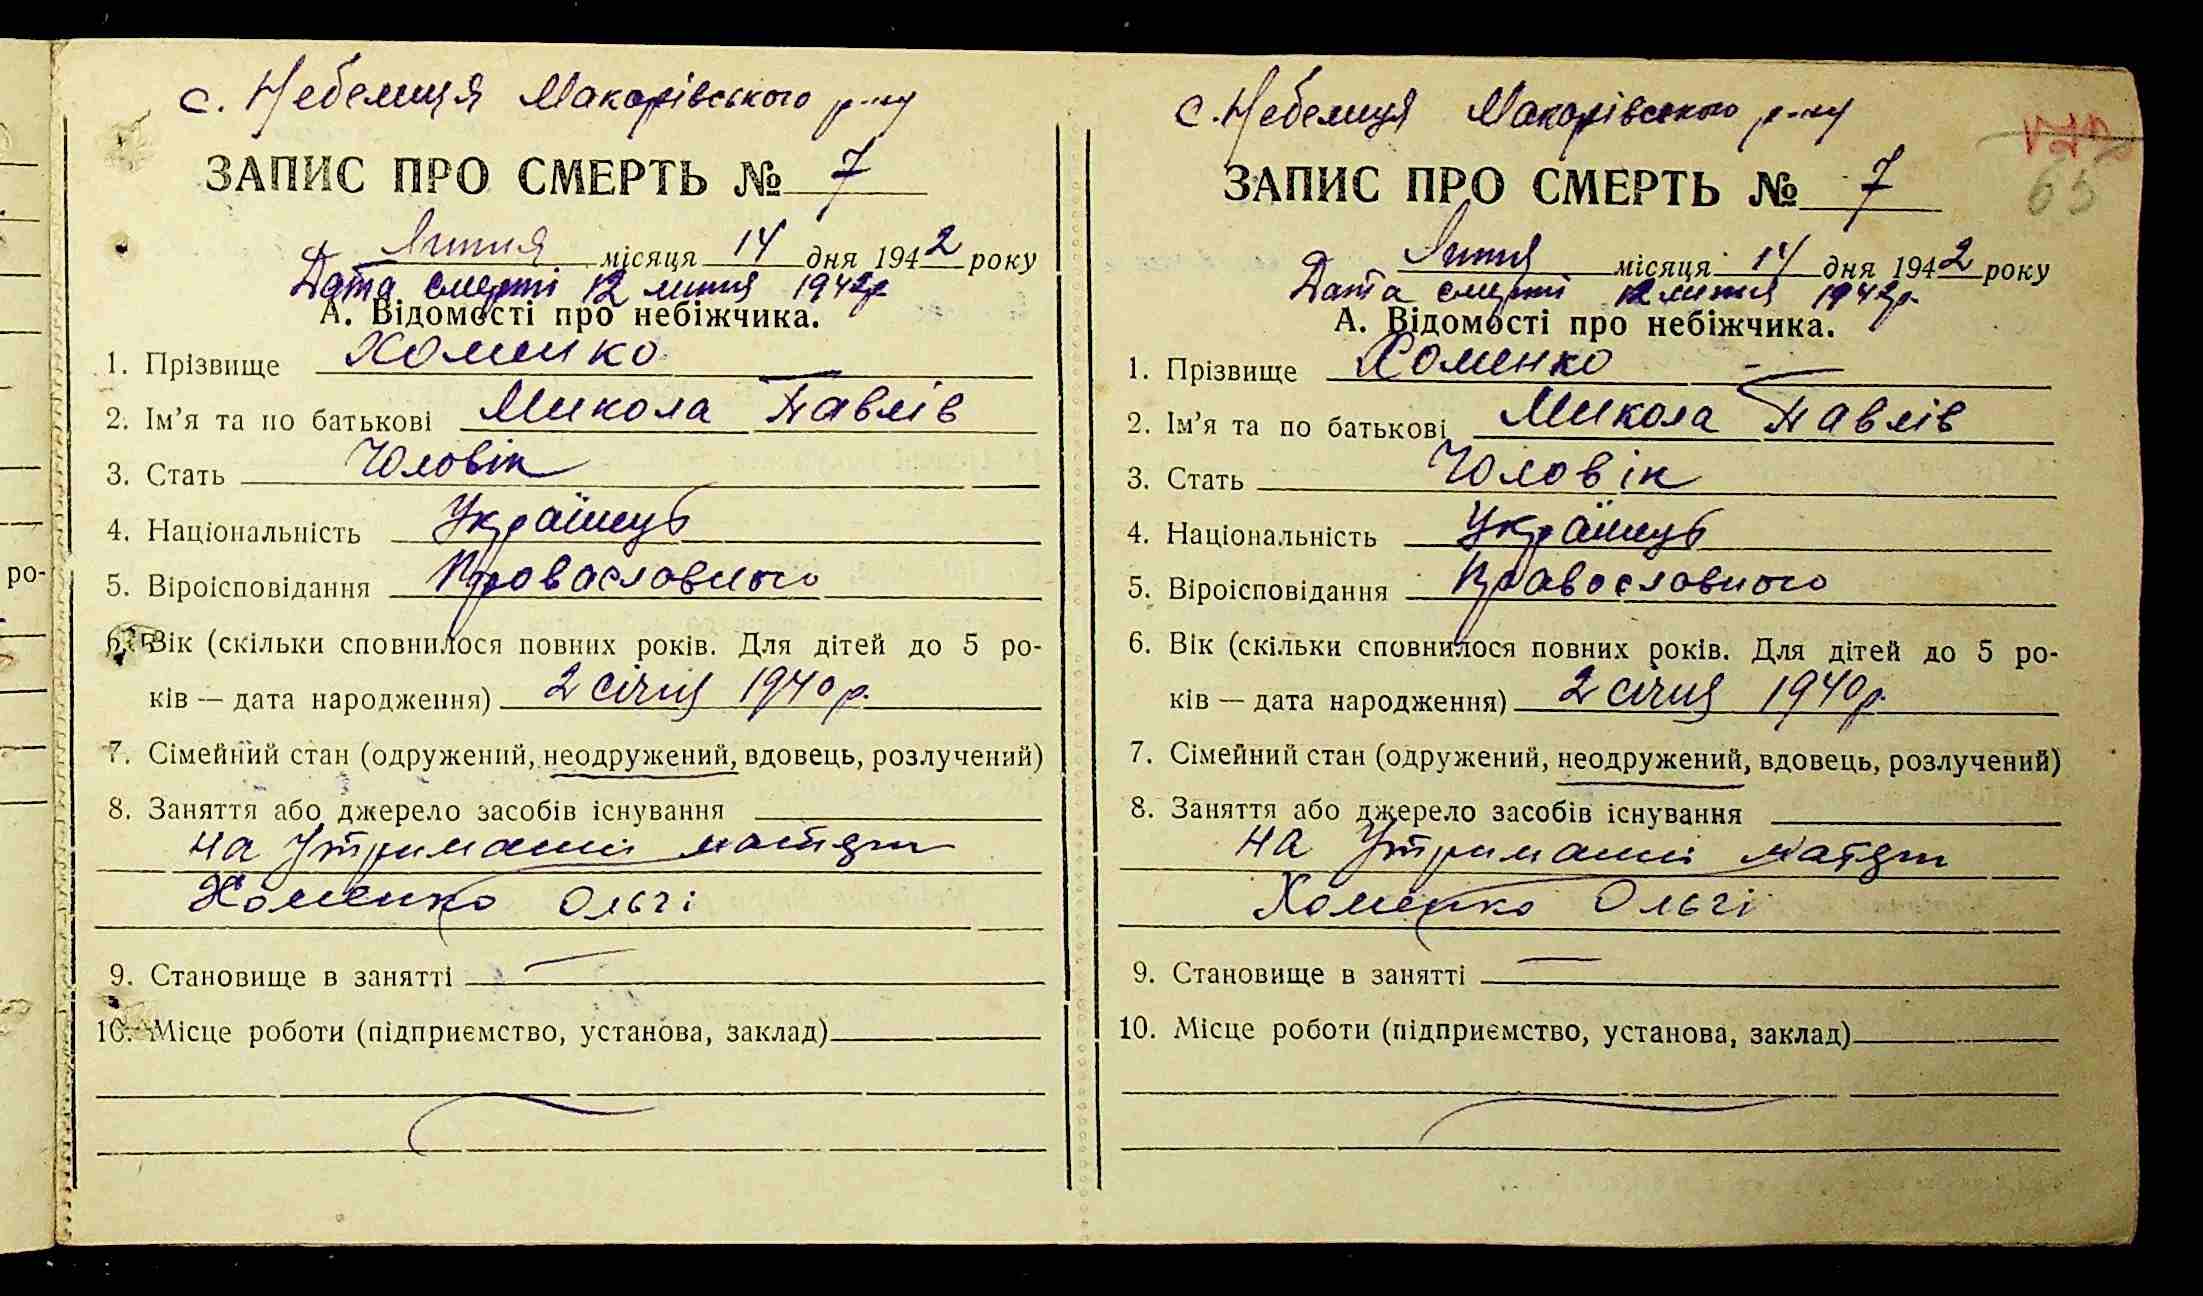 с. Небелиця Макарівського р-ну
ЗАПИС ПРО СМЕРТЬ № 7
Липня місяця 14 дня 1942 року
Дата смерті 12 липня 1942р
А. Відомості про небіжчика.
1. Прізвище Хоменко
2. Ім'я та по батькові Микола Павлів
3. Стать Чоловік
4. Національність Українець
5. Віроісповідання Православного
6. Вік (скільки сповнилося повних років. Для дітей до 5 ро-
ків — дата народження) 2 січня 1940 р.
7. Сімейний стан (одружений, неодружений, вдовець, розлучений)
8. Заняття або джерело засобів існування
на Утриманні матери
Хоменко Ольгі
9. Становище в занятті —
10. Місце роботи (підприємство, установа, заклад)
ро-
с. Небелиця Макарівського р-ну
ЗАПИС ПРО СМЕРТЬ № 7
65
Липня місяця 14 дня 1942 року
Дата смерті 12 липня 1942р.
А. Відомості про небіжчика.
1. Прізвище Хоменко
2. Ім'я та по батькові Микола Павлів
3. Стать Чоловік
4. Національність Українець
5. Віроісповідання Православного
6. Вік (скільки сповнилося повних років. Для дітей до 5 ро-
ків — дата народження) 2 січня 1940 р.
7. Сімейний стан (одружений, неодружений, вдовець, розлучений)
8. Заняття або джерело засобів існування
на Утриманні матери
Хоменко Ольгі
9. Становище в занятті —
10. Місце роботи (підприємство, установа, заклад)